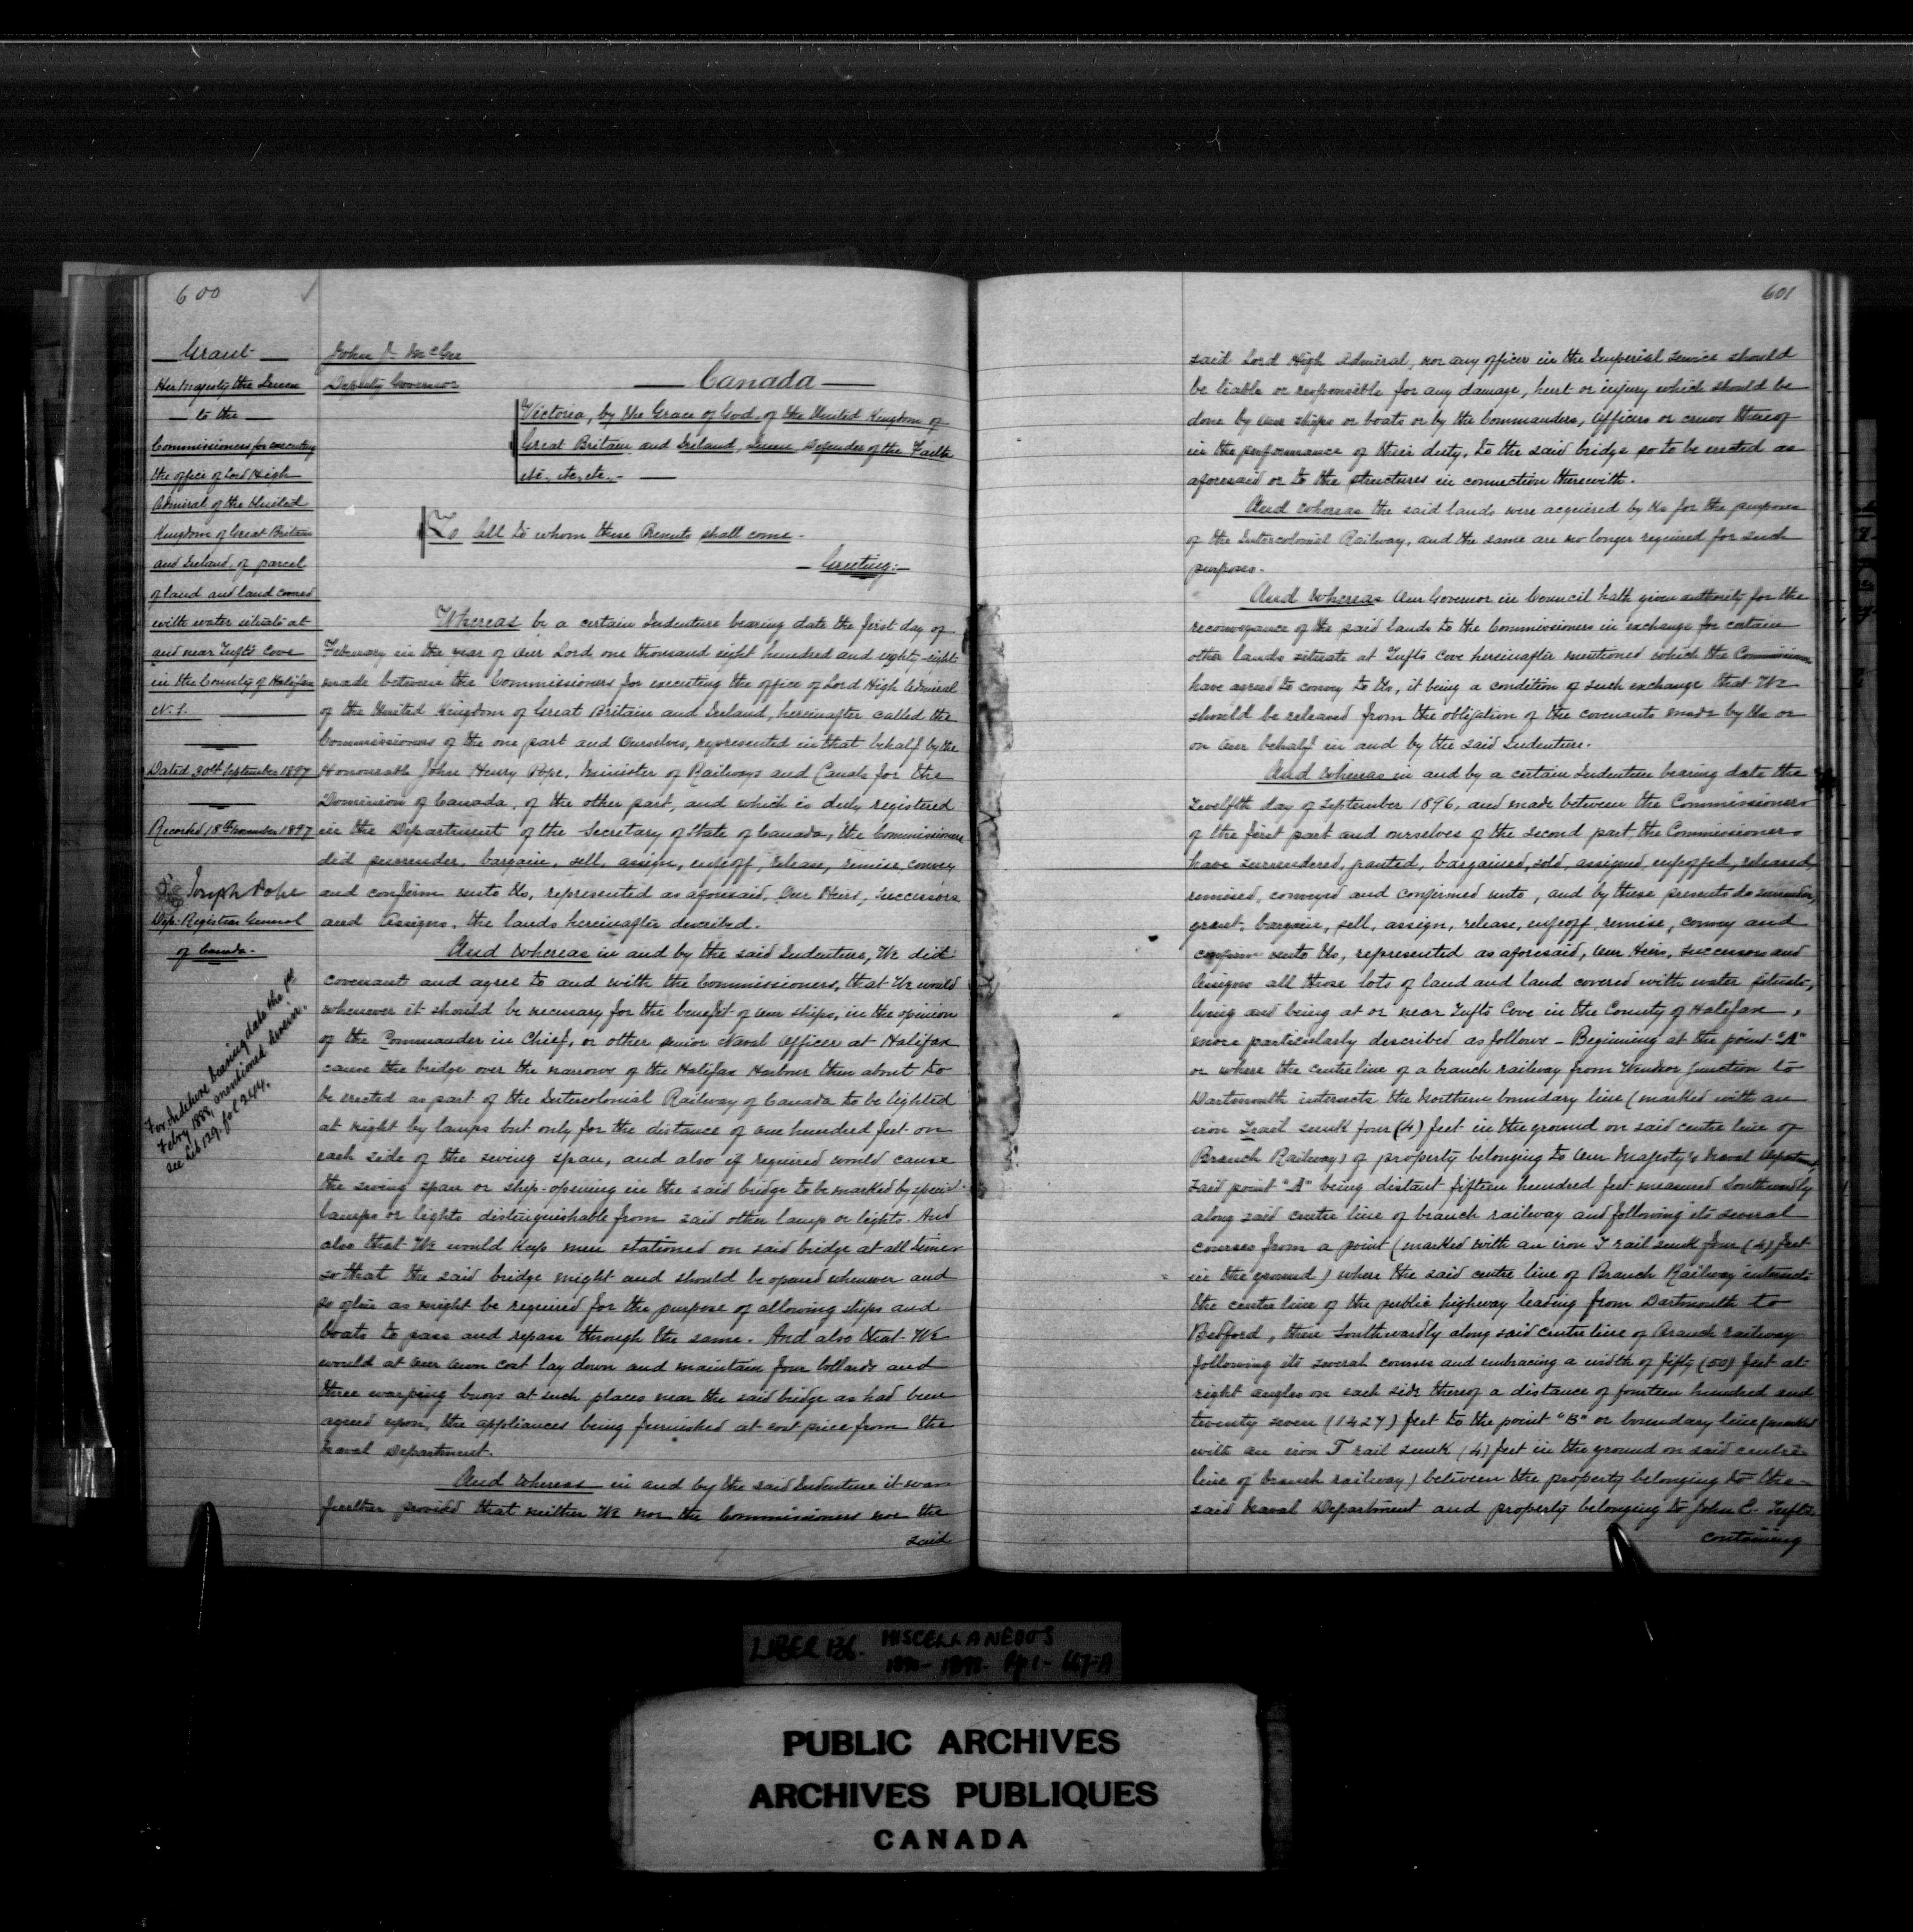 600
Grant
Her Majesty the Queen
to the
Commissioners for executing
the office of Lord High
Admiral of the United
Kingdom of Great Britain
and Ireland, of parcel
of land and land covered
with water situate at
and near Tufts Cove
in the County of Halifax
N.S.
Dated 30th September 1897
Recorded 18th November 1897
Joseph Pope
Dep: Registrar General
of Canada.
For Indenture bearing date the 1st
Febry 1888, mentioned herein.
see Lib 129. fol 244.
John J. McGee
Deputy Governor
Canada
Victoria, by the Grace of God, of the United Kingdom of
Great Britain and Ireland, Queen Defender of the Faith
etc. etc. etc.
To All to whom these Presents shall come.
Greeting:
Whereas by a certain Indenture bearing date the first day of
February in the year of Our Lord one thousand eight hundred and eighty-eight
made between the Commissioners for executing the office of Lord High Admiral
of the United Kingdom of Great Britain and Ireland, hereinafter called the
Commissioners of the one part and Ourselves, represented in that behalf by the
Honourable John Henry Pope, Minister of Railways and Canals for the
Dominion of Canada, of the other part, and which is duly registered
in the Department of the Secretary of State of Canada, the Commissioners
did surrender, bargain, sell, assign, enfeoff, release, remise, convey
and confirm unto Us, represented as aforesaid, Our Heirs, Successors
and Assigns, the lands hereinafter described.
And Whereas in and by the said Indenture, We did
covenant and agree to and with the Commissioners, that We would
whenever it should be necessary for the benefit of our ships, in the opinion
of the Commander in Chief, or other senior Naval Officer at Halifax
cause the bridge over the narrows of the Halifax Harbour then about to
be erected as part of the Intercolonial Railway of Canada to be lighted
at night by lamps but only for the distance of one hundred feet on
each side of the swing span, and also if required would cause
the swing span or ship-opening in the said bridge to be marked by special
lamps or lights distinguishable from said other lamps or lights. And
also that We would keep men stationed on said bridge at all times
so that the said bridge might and should be opened whenever and
so often as might be required for the purpose of allowing ships and
boats to pass and repass through the same. And also that We
would at Our own cost lay down and maintain four bollards and
three warping buoys at such places near the said bridge as had been
agreed upon, the appliances being furnished at cost price from the
Naval Department.
And Whereas in and by the said Indenture it was
further provided that neither We nor the Commissioners nor the
said
601
said Lord High Admiral, nor any officer in the Imperial service should
be liable or responsible for any damage, hurt or injury which should be
done by Our ships or boats or by the Commanders, Officers or crews thereof
in the performance of their duty, to the said bridge so to be erected as
aforesaid or to the structures in connection therewith.
And Whereas the said lands were acquired by Us for the purposes
of the Intercolonial Railway, and the same are no longer required for such
purposes.
And Whereas Our Governor in Council hath given authority for the
reconveyance of the said lands to the Commissioners in exchange for certain
other lands situate at Tufts Cove hereinafter mentioned which the Commissioners
have agreed to convey to Us, it being a condition of such exchange that We
should be released from the obligation of the covenants made by Us or
on Our behalf in and by the said Indenture.
And Whereas in and by a certain Indenture bearing date the
twelfth day of September 1896, and made between the Commissioners
of the first part and ourselves of the second part the Commissioners
have surrendered, granted, bargained, sold, assigned, enfeoffed, released,
remised, conveyed and confirmed unto, and by these presents do surrender,
grant, bargain, sell, assign, release, enfeoff, remise, convey and
confirm unto Us, represented as aforesaid, Our Heirs, Successors and
Assigns all those lots of land and land covered with water situate,
lying and being at or near Tufts Cove in the County of Halifax,
more particularly described as follows - Beginning at the point "A"
or where the centre line of a branch railway from Windsor Junction to
Dartmouth intersects the Northern boundary line (marked with an
iron T rail sunk four (4) feet in the ground on said centre line of
Branch Railway) of property belonging to Our Majesty's Naval Department,
said point "A" being distant fifteen hundred feet measured Southwardly
along said centre line of branch railway and following its several
courses from a point (marked with an iron T rail sunk four (4) feet
in the ground) where the said centre line of Branch Railway intersects
the centre line of the public highway leading from Dartmouth to
Bedford, thence Southwardly along said centre line of Branch railway
following its several courses and embracing a width of fifty (50) feet at
right angles on each side thereof a distance of fourteen hundred and
twenty seven (1427) feet to the point "B" or boundary line (marked
with an iron T rail sunk (4) feet in the ground on said centre
line of branch railway) between the property belonging to the
said Naval Department and property belonging to John E. Tufts,
containing
LIBER 136. MISCELLANEOUS
PUBLIC ARCHIVES
ARCHIVES PUBLIQUES
CANADA